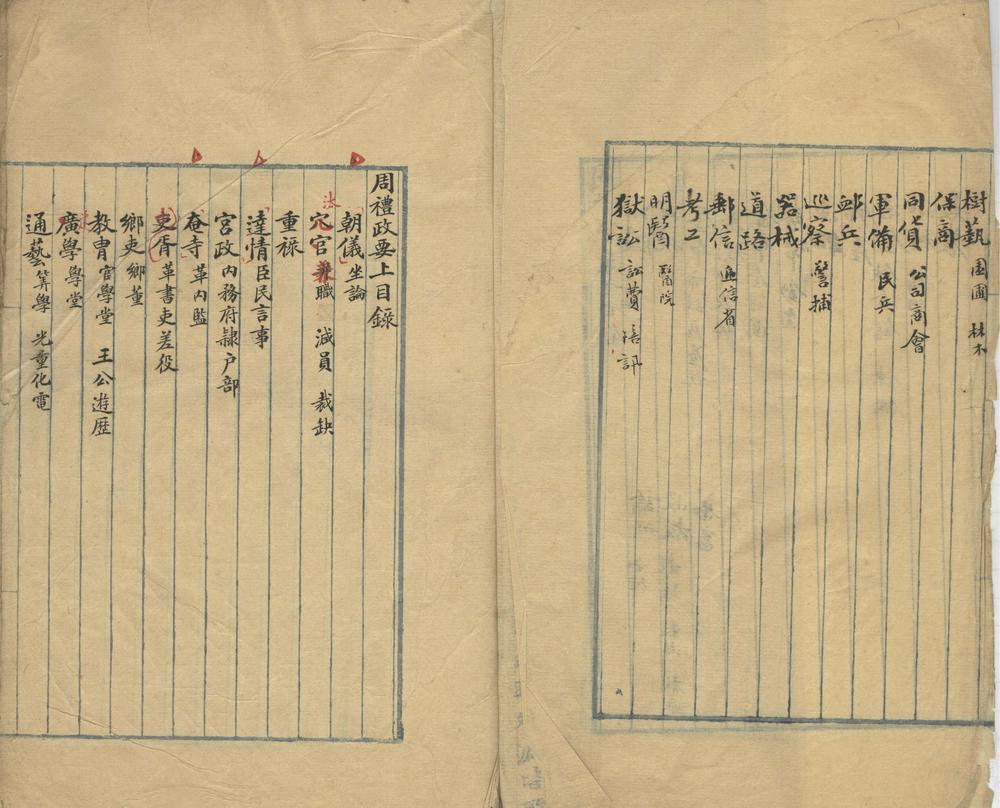 樹藝 園圃 林木
保商
同貨 公司商會
軍備 民兵
邺兵
巡察 警捕
器械
道路
郵信 通信省
明醫 醫院
考工
獄訟 訟費 培訊
周禮政要上目錄
朝儀 坐論
汰
冗官 兼職 減員 裁缺
重祿
達情 臣民言事
宮政 內務府隸户部
奄寺 革內監
吏胥 革書吏差役
鄉吏 鄉董
教胄 官學堂 王公遊歴
廣學 學堂
通藝 筭學 光重化電